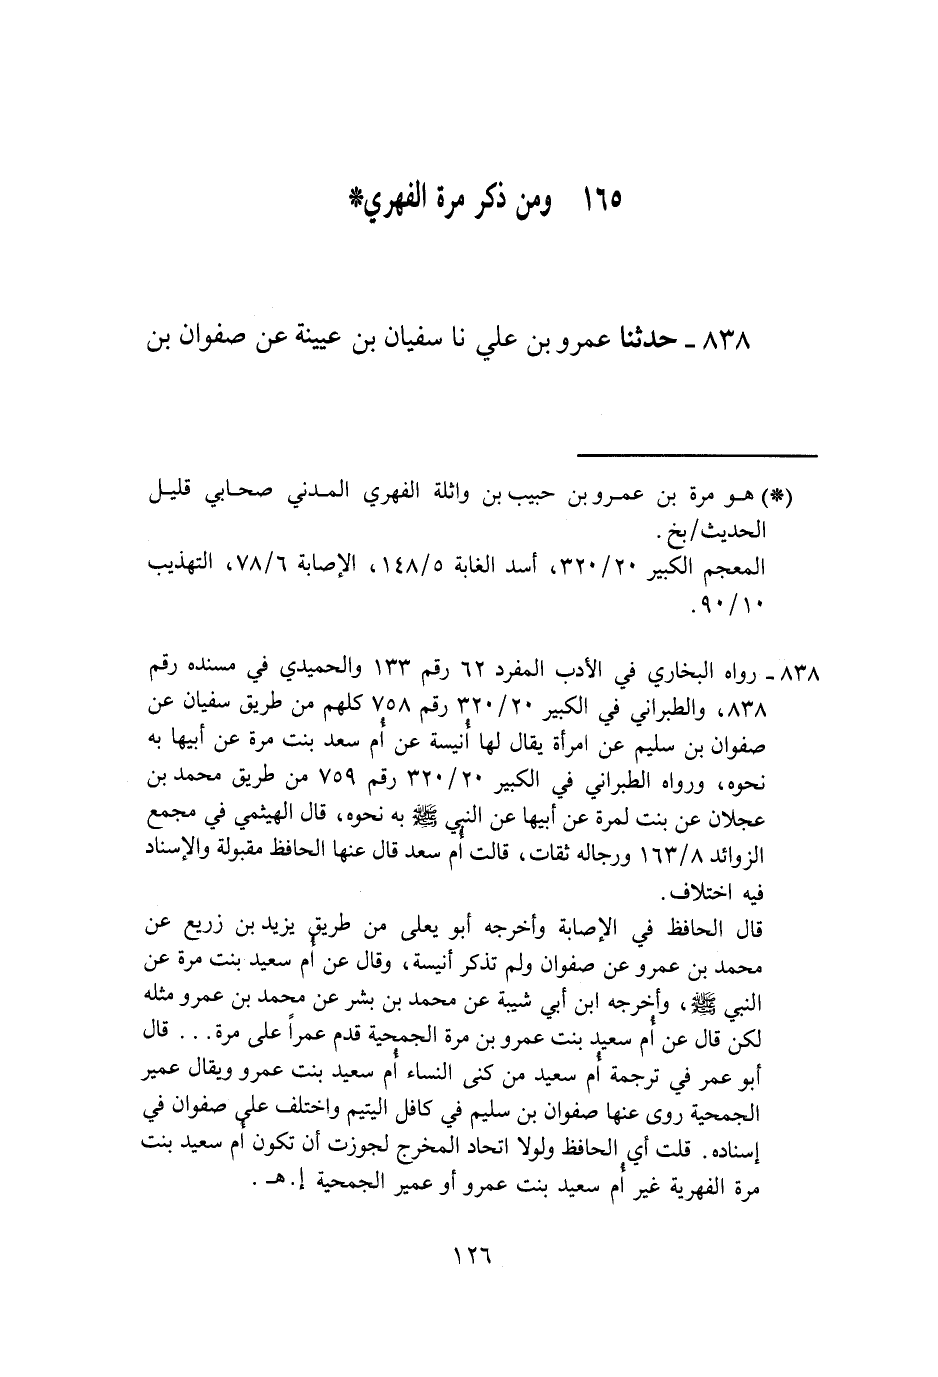 ١٦٥ ومن ذكر مرة الفهري*
٨٣٨ ـ حدثنا عمرو بن علي نا سفيان بن عيينة عن صفوان بن
(*) هـو مرة بن عمـرو بن حبيب بن واثلة الفهري المـدني صحـابي قليـل
الحديث/بخ .
المعجم الكبير ٣٢٠/٢٠، أسد الغابة ١٤٨/٥، الإصابة ٧٨/٦، التهذيب
٩٠/١٠.
٨٣٨ـ رواه البخاري في الأدب المفرد ٦٢ رقم ١٣٣ والحميدي في مسنده رقم
٨٣٨، والطبراني في الكبير ٣٢٠/٢٠ رقم ٧٥٨ كلهم من طريق سفيان عن
صفوان بن سليم عن امرأة يقال لها أنيسة عن أم سعد بنت مرة عن أبيها به
نحوه، ورواه الطبراني في الكبير ٣٢٠/٢٠ رقم ٧٥٩ من طريق محمد بن
عجلان عن بنت لمرة عن أبيها عن النبي ﷺ به نحوه، قال الهيثمي في مجمع
الزوائد ١٦٣/٨ ورجاله ثقات، قالت أم سعد قال عنها الحافظ مقبولة والإسناد
فيه اختلاف.
قال الحافظ في الإصابة وأخرجه أبو يعلى من طريق يزيد بن زريع عن
محمد بن عمرو عن صفوان ولم تذكر أنيسة، وقال عن أم سعيد بنت مرة عن
النبي ﷺ، وأخرجه ابن أبي شيبة عن محمد بن بشر عن محمد بن عمرو مثله
لكن قال عن أم سعيد بنت عمرو بن مرة الجمحية قدم عمراً على مرة... قال
أبو عمر في ترجمة أم سعيد من كنى النساء أم سعيد بنت عمرو ويقال عمير
الجمحية روى عنها صفوان بن سليم في كافل اليتيم واختلف على صفوان في
إسناده. قلت أي الحافظ ولولا اتحاد المخرج لجوزت أن تكون أم سعيد بنت
مرة الفهرية غير أم سعيد بنت عمرو أو عمير الجمحية إ.هـ .
١٢٦